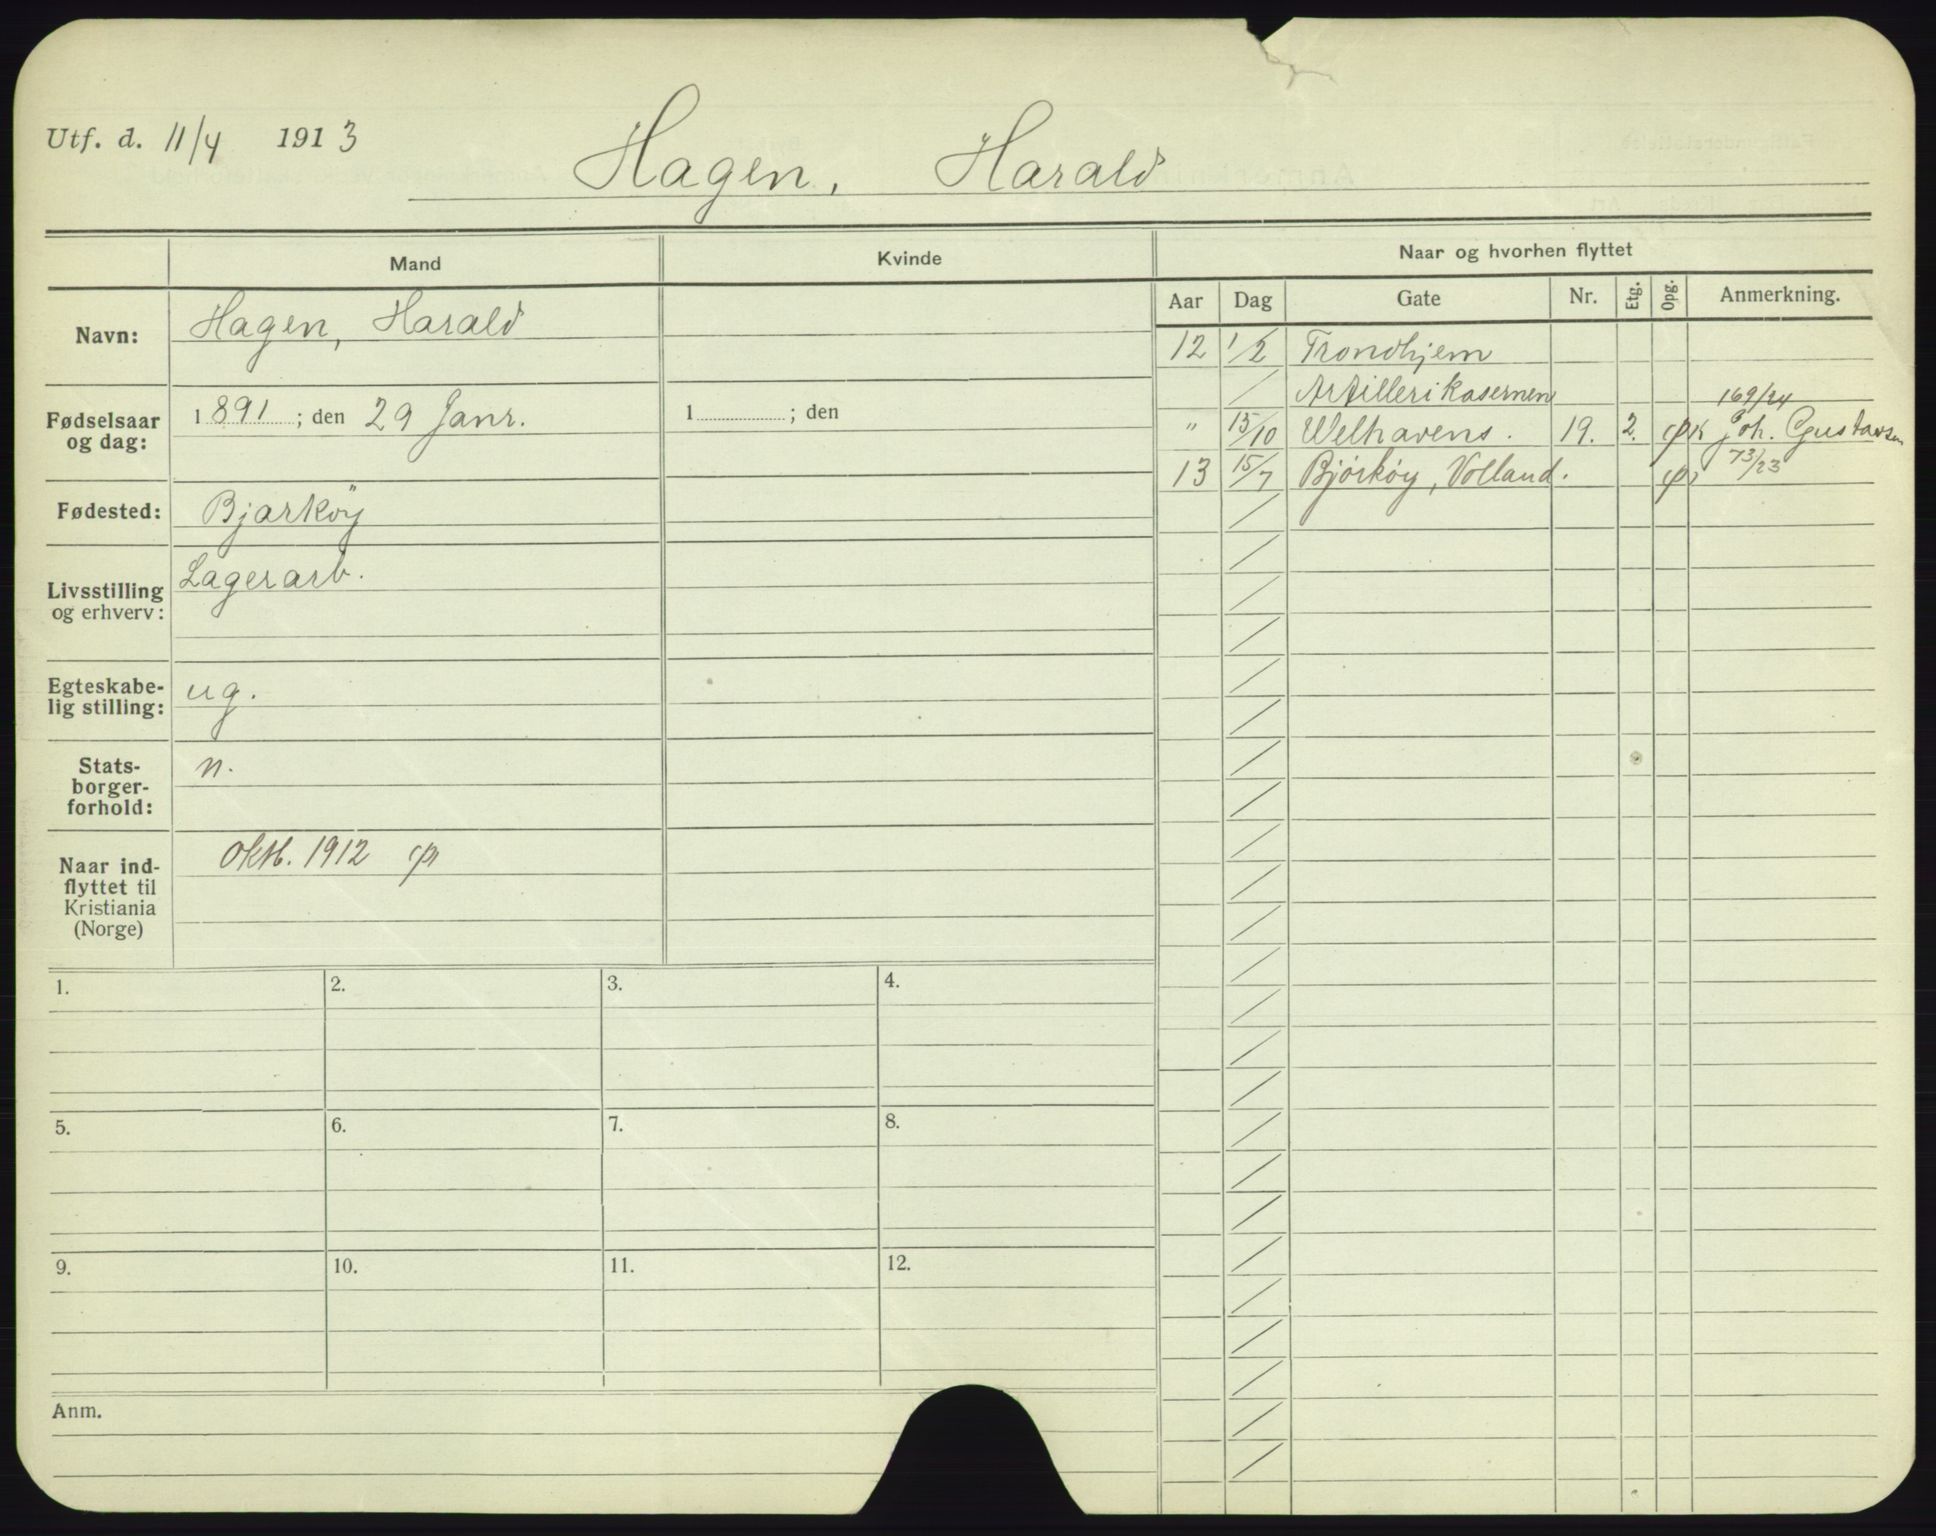 Utf. d. 11/4 1913
Hagen, Harald
Mand
Kvinde
Naar og hvorhen flyttet
Aar Dag Gate Nr. Etg. Opg. Anmerkning.
Navn: Hagen, Harald
Fødselsaar og dag: 1891; den 29 Janr.
1 ; den
Fødested: Bjarköy
Livsstilling og erhverv: Lagerarb.
Egteskabe-
lig stilling: ug.
Stats-
borger-
forhold: n.
Naar ind-
flyttet til
Kristiania
(Norge) Oktb. 1912
12 1/2 Trondhjem
Artillerikasernen 169/24
" 15/10 Welhavens. 19. 2. Joh. Gustavsen
13 15/7 Bjørkøy, Volland. 73/23
1. 2. 3. 4.
5. 6. 7. 8.
9. 10. 11. 12.
Anm.